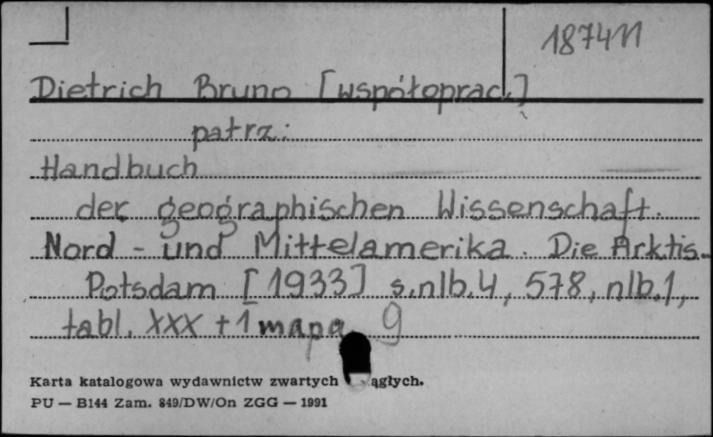 18741
Dietrich Bruno [współoprac.]
patrz:
Handbuch
der geographischen Wissenschaft.
Nord - und Mittelamerika. Die Arktis.
Potsdam [1933] s.nlb.4, 578, nlb.1,
tabl. XXX + 1 mapa 9
Karta katalogowa wydawnictw zwartych ągłych.
PU — B144 Zam. 849/DW/On ZGG — 1991